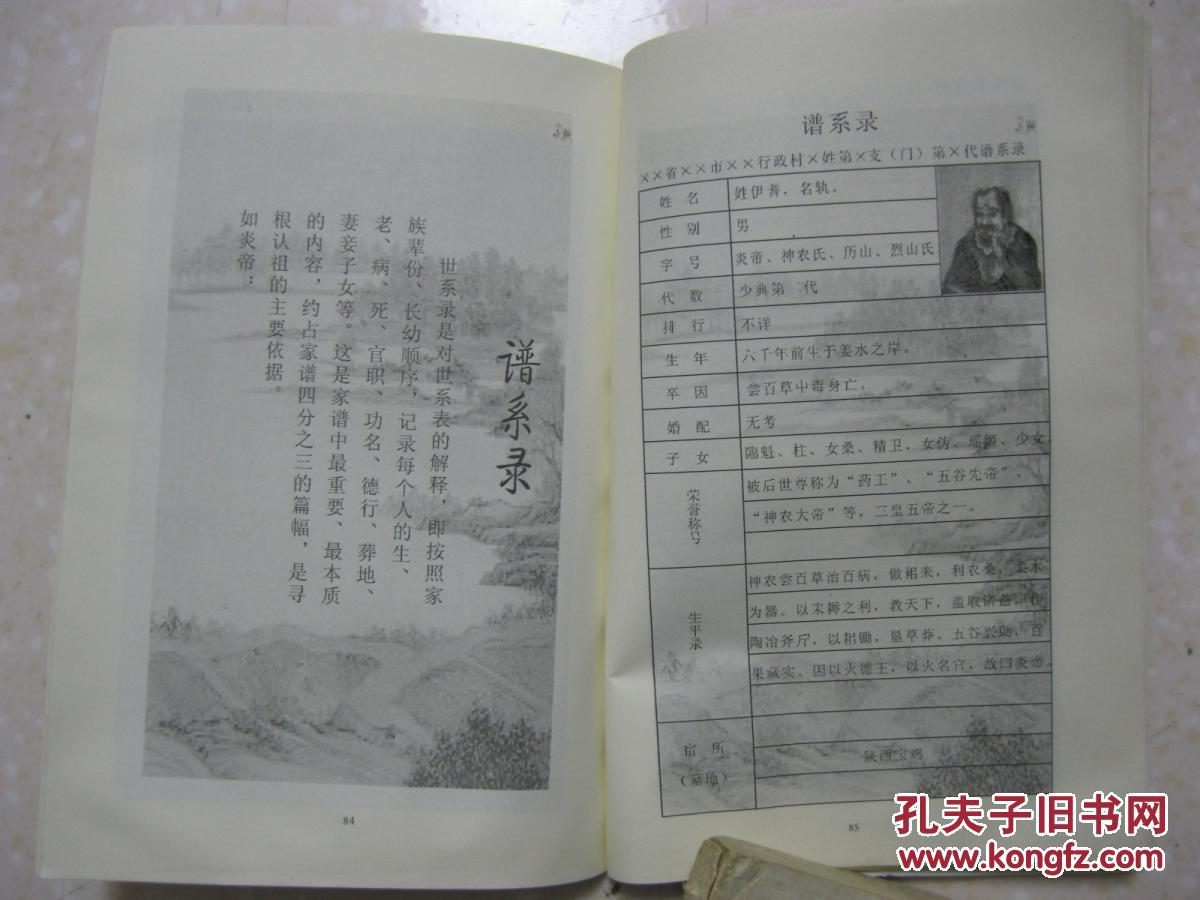 谱系录
世系录是对世系表的解释，即按照家
族辈份、长幼顺序，记录每个人的生、
老、病、死、官职、功名、德行、葬地、
妻妾子女等。这是家谱中最重要、最本质
的内容，约占家谱四分之三的篇幅，是寻
根认祖的主要依据。
如炎帝：
84
谱系录
××省××市××行政村×姓第×支（门）第×代谱系录
姓名 姓伊耆，名轨。
性别 男
字号 炎帝、神农氏、历山、烈山氏
代数 少典第 代
排行 不详
生年 六千年前生于姜水之岸。
卒因 尝百草中毒身亡。
婚配 无考
子女 临魁、柱、女桑、精卫、女伪、瑶姬、少女
荣誉称号
被后世尊称为“药王”、“五谷先帝”、
“神农大帝”等，三皇五帝之一。
生平录
神农尝百草治百病，做耜耒，利农桑，柔木
为器。以耒耨之利，教天下，盖取诸益，作
陶冶斧斤，以耜锄，垦草莽，五谷兴助，百
果藏实。因以火德王，以火名官，故曰炎帝。
宿所
（墓地）
陕西宝鸡
85
孔夫子旧书网
www.kongfz.com